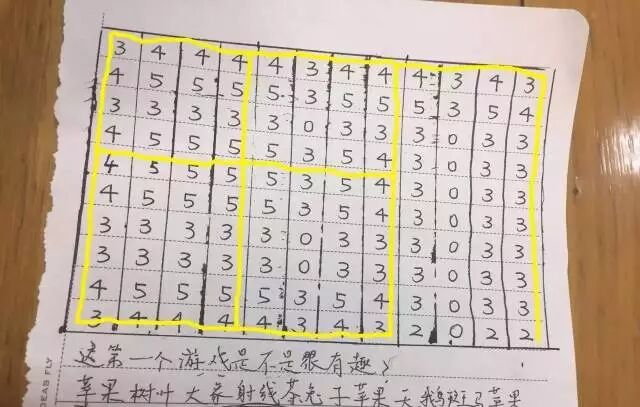 3 4 4 4 4 3 4 4 4 3 4 3
4 5 5 5 5 3 5 5 5 3 5 4
3 3 3 3 3 0 3 3 3 0 3 3
4 5 5 5 5 3 5 4 3 0 3 3
4 5 5 5 5 3 5 4 3 0 3 3
4 5 5 5 5 3 5 4 3 0 3 3
3 3 3 3 3 0 3 3 3 0 3 3
3 3 3 3 3 0 3 3 3 0 3 3
4 5 5 5 5 3 5 4 3 0 3 3
3 4 4 4 4 3 4 3 2 0 2 2
这第一个游戏是不是很有趣?
苹果树叶大 射线茶 子苹果天鹅 马苹果
DEAS FLY